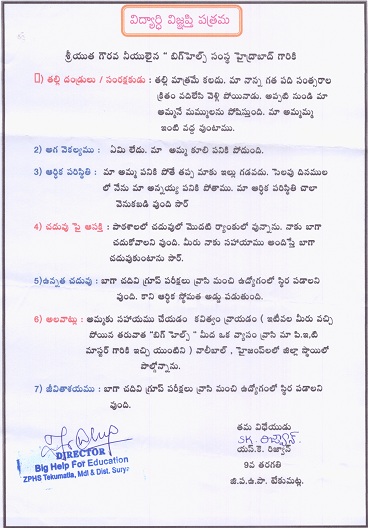 విద్యార్ధి విజ్ఞప్తి పత్రము
శ్రీయుత గౌరవ నీయులైన " బిగ్‌హెల్ప్ సంస్థ హైద్రాబాద్ గారికి
1) తల్లి దండ్రులు / సంరక్షకుడు : తల్లి మాత్రమే కలదు. మా నాన్న గత పది సంత్సరాల
క్రితం వదిలేసి వెళ్లి పోయినాడు. అప్పటి నుండి మా
అమ్మనే మమ్ములను పోషిస్తుంది. మా అమ్మమ్మ
ఇంటి వద్ద వుంటాము.
2) అగ వెకల్యము : ఏమి లేదు. మా అమ్మ కూలి పనికి పోదుంది.
3) ఆర్ధిక పరిస్థితి : మా అమ్మ పనికి పోతే తప్ప మాకు ఇల్లు గడవదు. సెలవు దినముల
లో నేను మా అన్నయ్య పనికి పోతాము. మా ఆర్ధిక పరిస్థితి చాలా
వెనుకబడి వుంది సార్
4) చదువు పై ఆసక్తి : పాఠశాలలో చదువులో మొదటి ర్యాంకులో వున్నాను. నాకు బాగా
చదుకోవాలని వుంది. మీరు నాకు సహాయము అందిస్తే బాగా
చదువుకుంటాను సార్.
5)ఉన్నత చదువు : బాగా చదివి గ్రూప్ పరీక్షలు వ్రాసి మంచి ఉద్యోగంలో స్థిర పడాలని
వుంది. కాని ఆర్ధిక స్తోమత అడ్డు పడుతుంది.
6) అలవాట్లు : అమ్మకు సహాయము చేయడం కవిత్వం వ్రాయడం ( ఇటీవల మీరు వచ్చి
పోయిన తరువాత "బిగ్ హెల్ప్ " మీద ఒక వ్యాసం వ్రాసి మా పి.ఇ.టి
మాస్టర్ గారికి ఇచ్చి యుంటిని ) వాలీబాల్ , హైజంప్‌లలో జిల్లా స్థాయిలో
పాల్గోన్నాను.
7) జీవితాశయము : బాగా చదివి గ్రూప్ పరీక్షలు వ్రాసి మంచి ఉద్యోగంలో స్థిర పడాలని
వుంది.
తమ విధేయుడు
SK. రిజ్వాన్
యస్.కె. రిజ్వాన్
9వ తరగతి
జి.ప.ఉ.పా. టేకుమట్ల.
DIRECTOR
Big Help For Education
ZPHS Tekumatla, Mdl & Dist. Surya